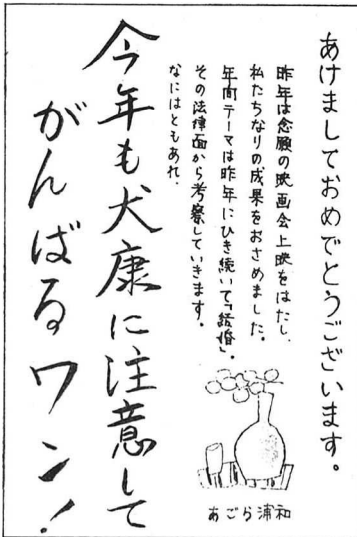 あけましておめでとうございます。
昨年は念願の映画会上映をはたし、
私たちなりの成果をおさめました。
年間テーマは昨年にひき続いて「結婚」。
その法律面から考察していきます。
なにはともあれ、
今年も犬康に注意して
がんばるワン！
あごら浦和